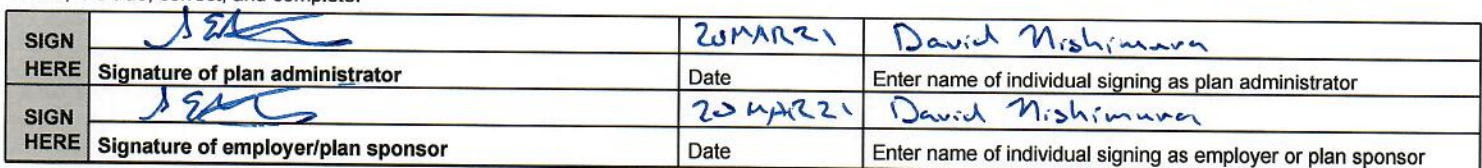 true, correct, and complete.
SIGN HERE
20MAR21 David Nishimura
Signature of plan administrator Date Enter name of individual signing as plan administrator
SIGN HERE
20MAR21 David Nishimura
Signature of employer/plan sponsor Date Enter name of individual signing as employer or plan sponsor